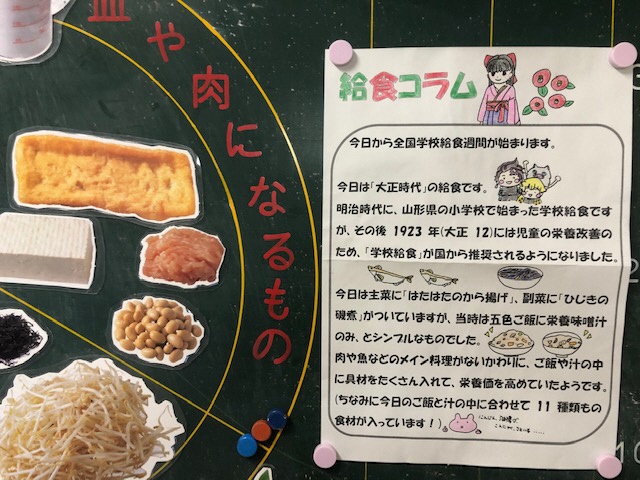 血や肉になるもの
給食コラム
今日から全国学校給食週間が始まります。
今日は「大正時代」の給食です。
明治時代に、山形県の小学校で始まった学校給食です
が、その後 1923 年(大正 12)には児童の栄養改善の
ため、「学校給食」が国から推奨されるようになりました。
今日は主菜に「はたはたのから揚げ」、副菜に「ひじきの
磯煮」がついていますが、当時は五色ご飯に栄養味噌汁
のみ、とシンプルなものでした。
肉や魚などのメイン料理がないかわりに、ご飯や汁の中
に具材をたくさん入れて、栄養価を高めていたようです。
(ちなみに今日のご飯と汁の中に合わせて 11 種類もの
食材が入っています！)
にんじん、油揚げ
10